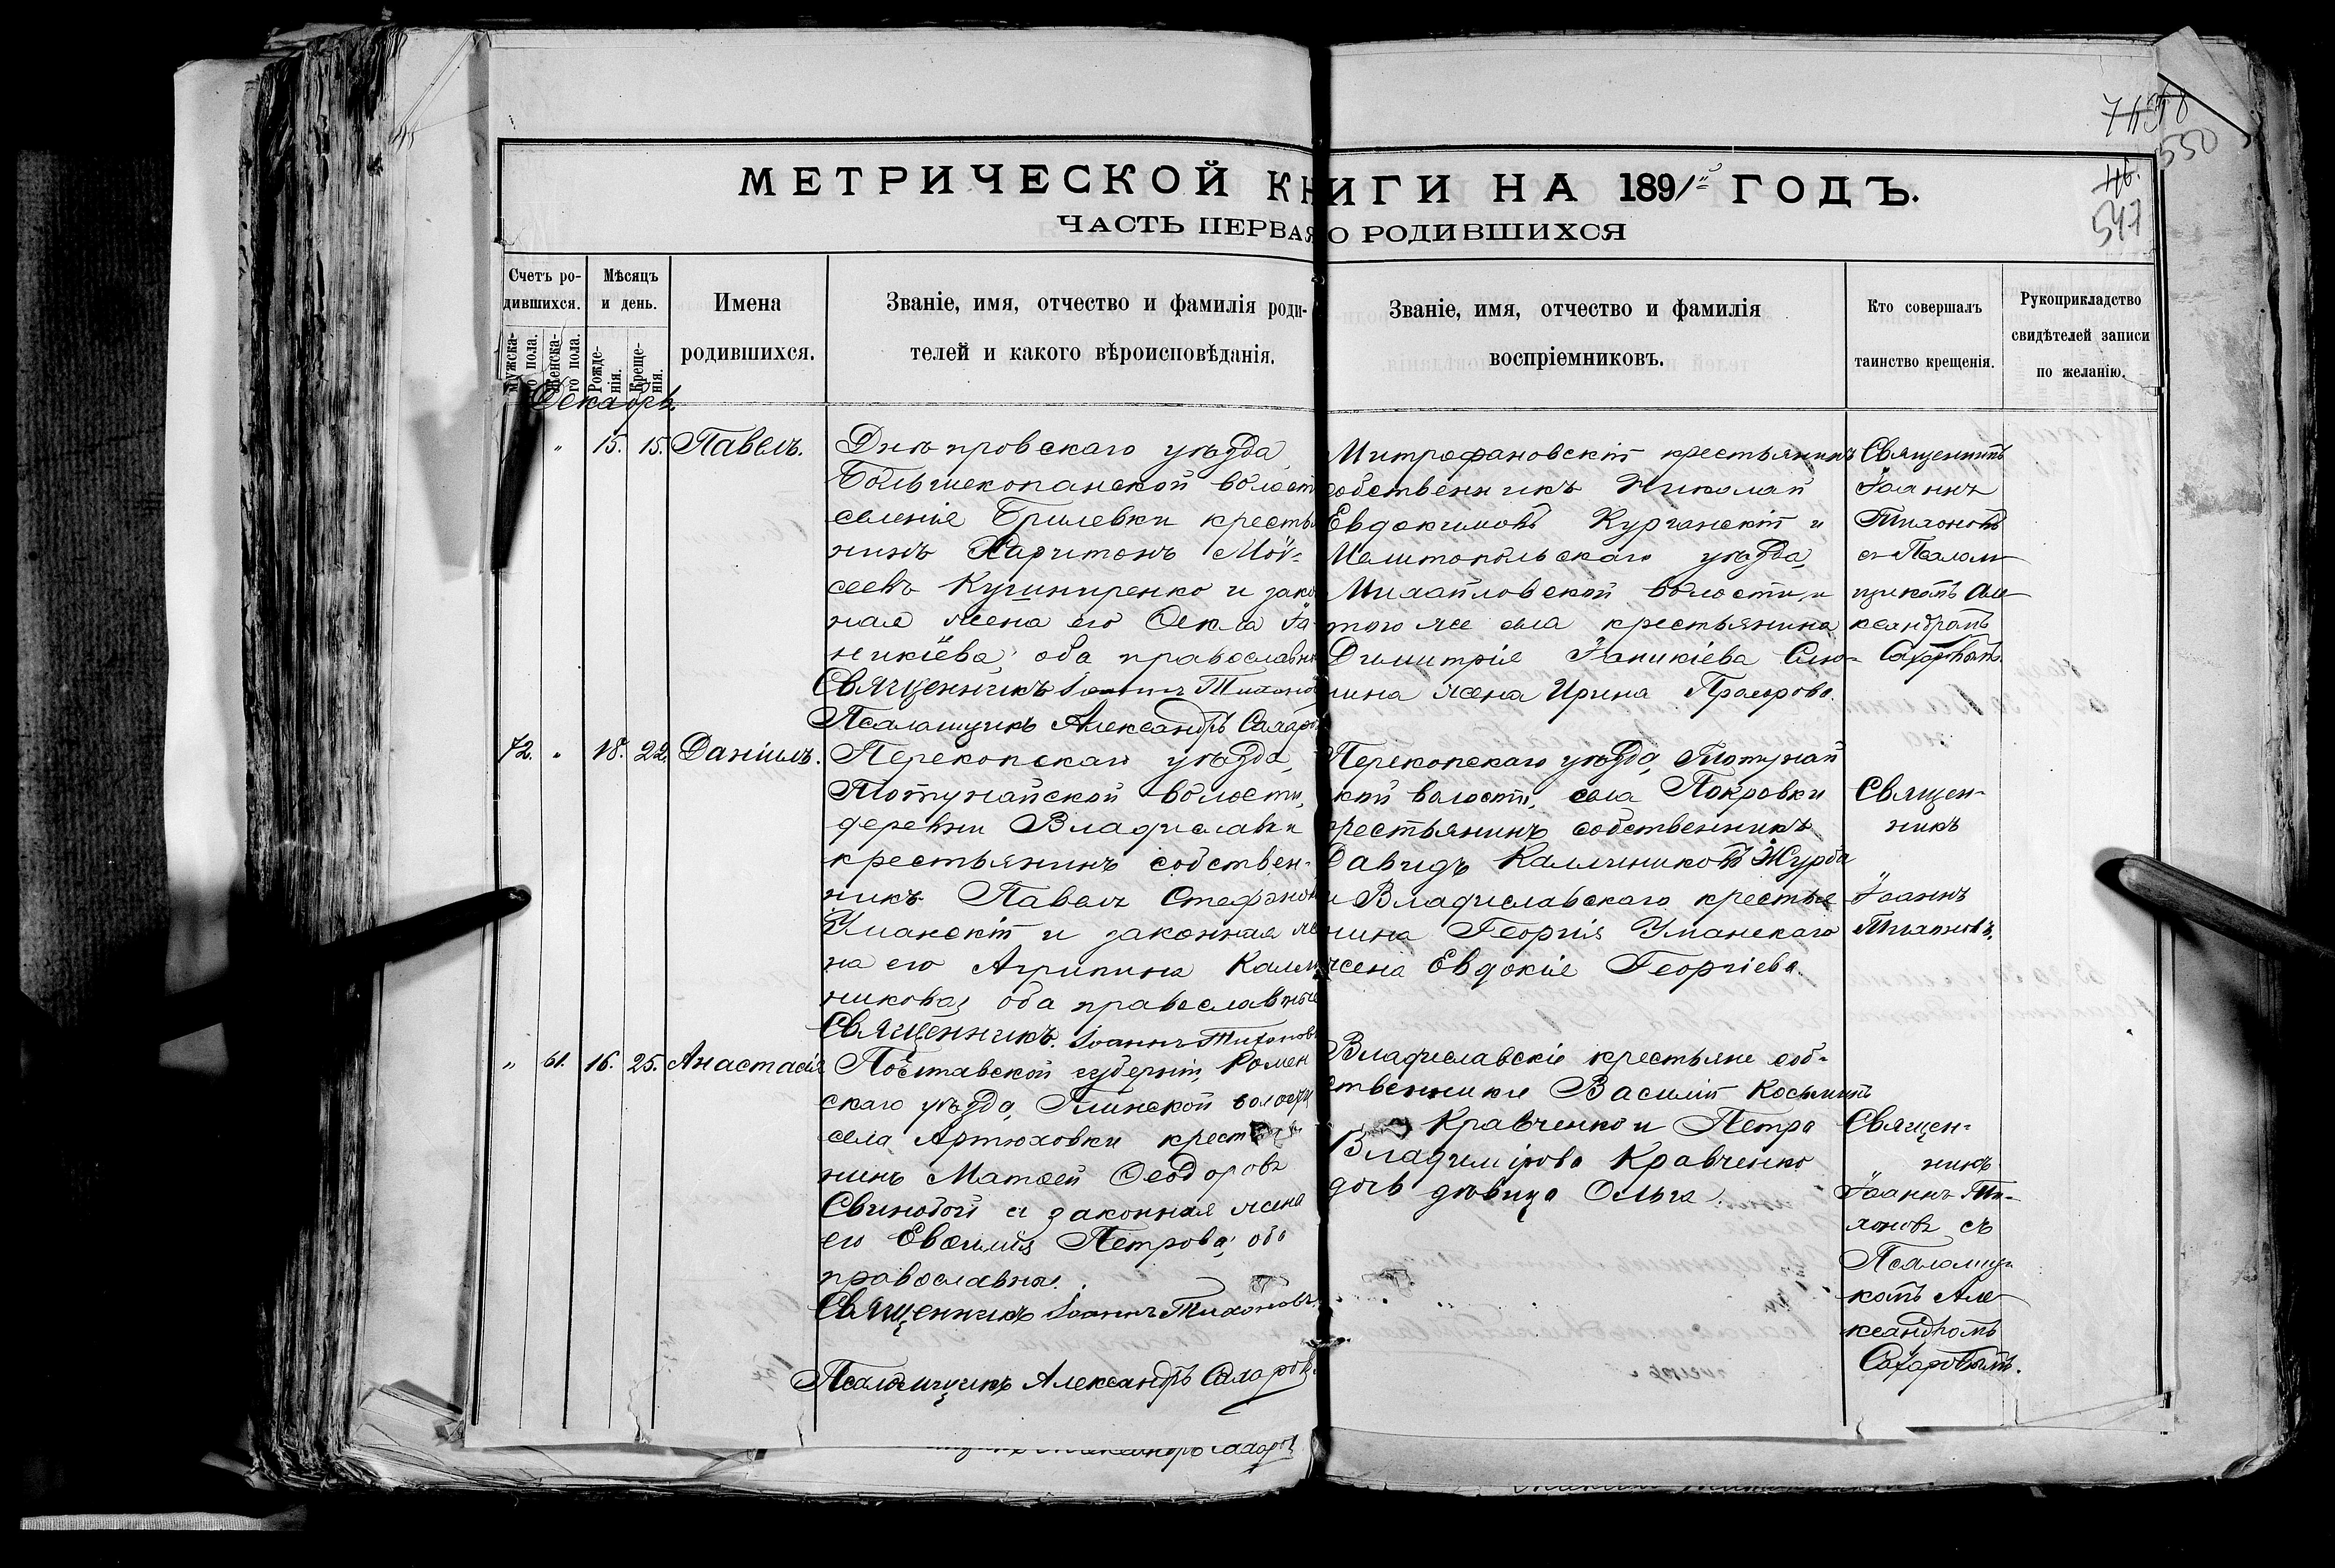 550
547
МЕТРИЧЕСКОЙ КНИГИ НА 1891й ГОДЪ.
ЧАСТЬ ПЕРВАЯ О РОДИВШИХСЯ
Счетъ родившихся.
Мужска-
го пола.
Женска-
го пола.
Мѣсяцъ
и день.
Рожде-
нія.
Креще-
нія.
Имена
родившихся.
Званіе, имя, отчество и фамилія роди-
телей и какого вѣроисповѣданія.
Званіе, имя, отчество и фамилія
воспріемниковъ.
Кто совершалъ
таинство крещенія.
Рукоприкладство
свидѣтелей записи
по желанію.
Декабрь.
" 15. 15. Павелъ.
Днѣпровскаго уѣзда,
Большекопанской волост
селенія Брилевки кресть
нинъ Харитонъ Мой-
сеевъ Кушниренко и зако
ная жена его Ѳекла Іа-
никіева, оба православн
Священникъ Іоаннъ Тихонов
Псаломщикъ Александръ Сахаро
Митрофановскій крестьянинъ
собственникъ Николай
Евдокимовъ Курганскій и
Мелитопольскаго уѣзда,
Михайловской волости и
того же села крестьянина
Димитрія Іаникіева
жена Ирина
Священникъ
Іоаннъ
Тихоновъ
съ Псалом-
щикомъ Але-
ксандромъ
Сахаровымъ.
72. " 18. 22. Даніилъ.
Перекопскаго уѣзда,
Тотунайской волости,
деревни Владиславки
крестьянинъ собствен-
никъ Павелъ Стефанов
Уманскій и законная же
на его Агрипина Калин
никова, оба православные
Священникъ Іоаннъ Тихоновъ
Перекопскаго уѣзда, Тотунай
кой волости, села Покровки
крестьянинъ собственникъ
Давидъ Калиниковъ Журба
и Владиславскаго крестья
нина Георгія Уманскаго
жена Евдокія Георгіева.
Священ-
никъ
Іоаннъ
Тихоновъ.
" 61. 16. 25. Анастасія
Полтавской губерніи, Ромен
скаго уѣзда, Глинской волости
села Артюховки крестья
нинъ Матѳей Ѳеодоровъ
Свинобой и законная жена
его Евѳимія Петрова, оба
православны.
Священникъ Іоаннъ Тихоновъ.
Псаломщикъ Александръ Сахаровъ.
Владиславскіе крестьяне соб-
ственники Василій Косьминъ
Кравченко и Петра
Владимірова Кравченко
дочь дѣвица Ольга.
Священ-
никъ
Іоаннъ Ти-
хоновъ съ
Псаломщи-
комъ Але-
ксандромъ
Сахаровымъ.